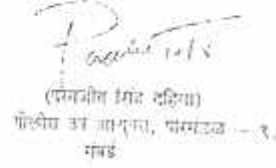 (परमजीत सिंह दहिया)
पोलीस उप आयुक्त, परिमंडळ - १,
मुंबई